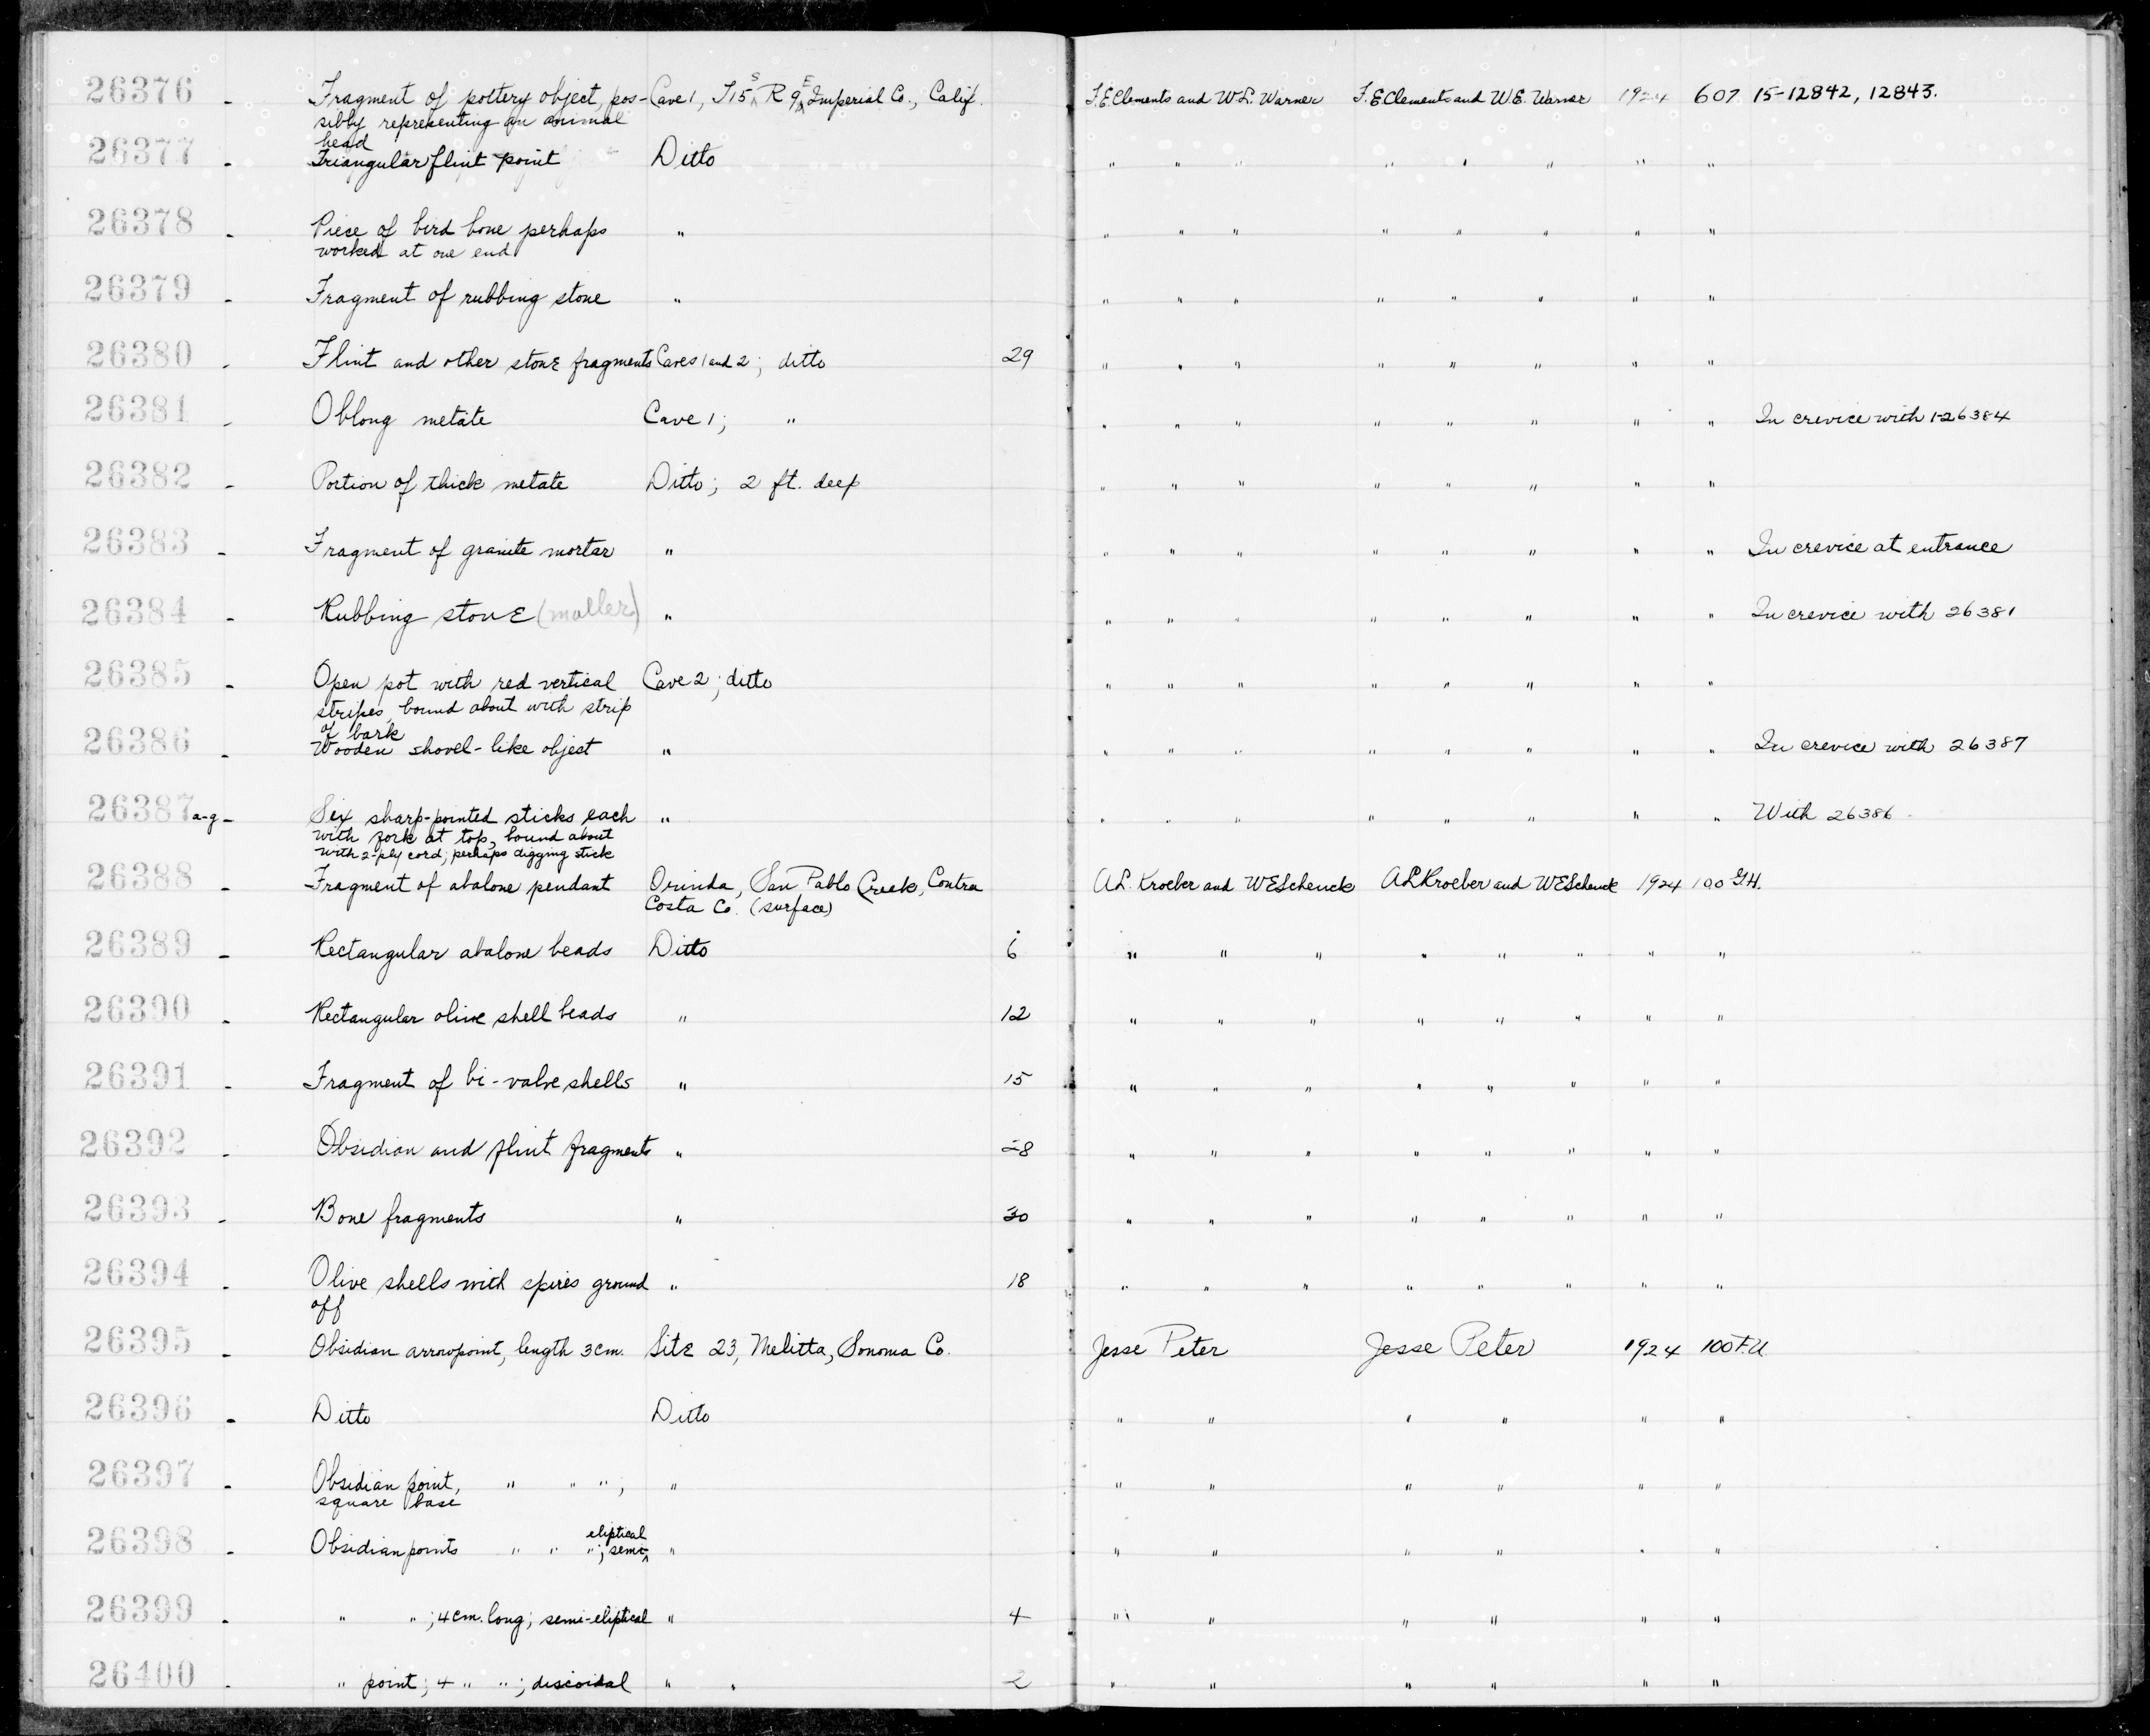 26376 - Fragment of pottery object, pos- Cave 1, T15 S R 9 E Imperial Co., Calif. F.E. Clements and W.L. Warner F.E. Clements and W.E. Warner 1924 607 15-12842, 12843.
sibly representing an animal
head
26377 - Triangular flint point Ditto " " " " " " " "
26378 - Piece of bird bone perhaps " " " " " " " " "
worked at one end
26379 - Fragment of rubbing stone " " " " " " " " "
26380 - Flint and other stone fragments Caves 1 and 2; ditto 29 " " " " " " " "
26381 - Oblong metate Cave 1; " " " " " " " " " In crevice with 1-26384
26382 - Portion of thick metate Ditto; 2 ft. deep " " " " " " " "
26383 - Fragment of granite mortar " " " " " " " " " In crevice at entrance
26384 - Rubbing stone (muller) " " " " " " " " " In crevice with 26381
26385 - Open pot with red vertical Cave 2; ditto " " " " " " " "
stripes, bound about with strip
of bark
26386 - Wooden shovel-like object " " " " " " " " " In crevice with 26387
26387 a-g - Six sharp-pointed sticks each " " " " " " " " " With 26386
with fork at top, bound about
with 2-ply cord; perhaps digging stick
26388 - Fragment of abalone pendant Orinda, San Pablo Creek, Contra A.L. Kroeber and W E Schenck A L Kroeber and W E Schenck 1924 100 G.H.
Costa Co. (surface)
26389 - Rectangular abalone beads Ditto 6 " " " " " " " "
26390 - Rectangular olive shell beads " 12 " " " " " " " "
26391 - Fragment of bi-valve shells " 15 " " " " " " " "
26392 - Obsidian and flint fragments " 28 " " " " " " " "
26393 - Bone fragments " 30 " " " " " " " "
26394 - Olive shells with spires ground " 18 " " " " " " " "
off
26395 - Obsidian arrowpoint, length 3cm. Site 23, Melitta, Sonoma Co. Jesse Peter Jesse Peter 1924 100 F.U.
26396 - Ditto Ditto " " " " " "
26397 - Obsidian point, " " "; " " " " " " "
square base
26398 - Obsidian points " " "; semi-eliptical " " " " " " "
26399 - " "; 4cm. long; semi-eliptical " 4 " " " " " "
26400 - " point; 4 " "; discoidal " " 2 " " " " " "